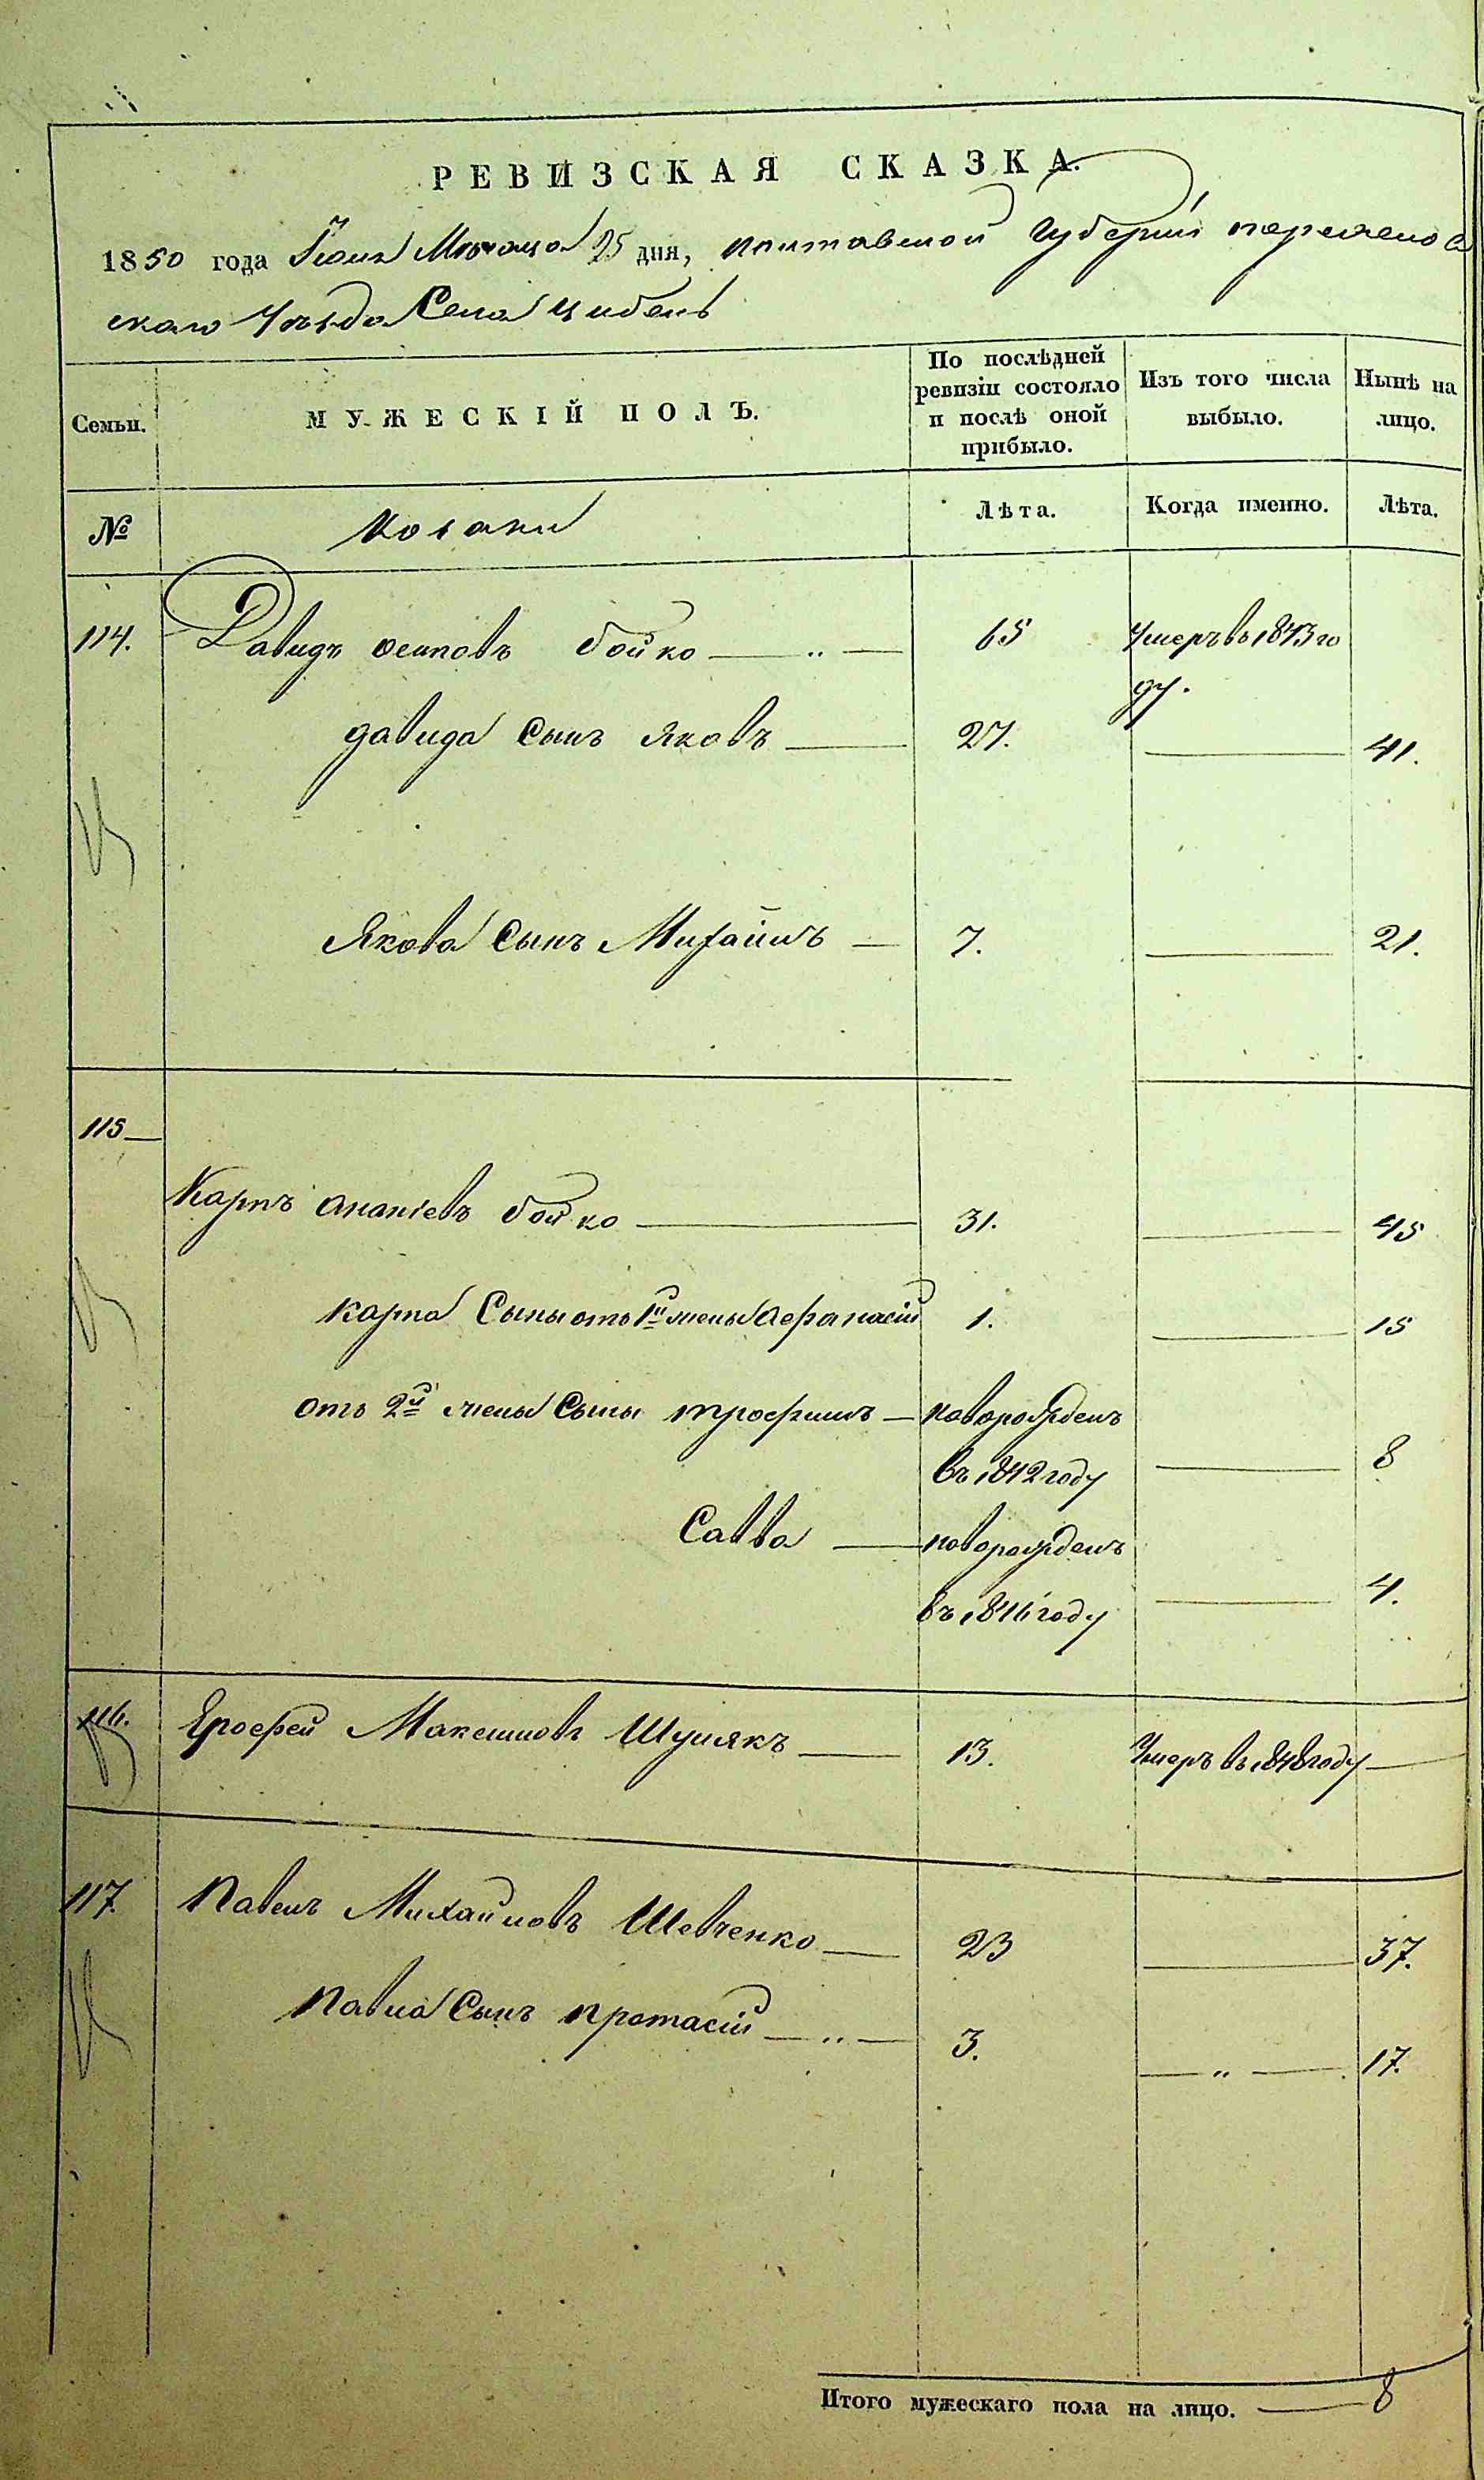 РЕВИЗСКАЯ СКАЗКА.
1850 года Іюня Мѣсяца 25 дня, Полтавской Губерніи переяслов
скаго Уѣзда Села Цибель
Семьи.
МУЖЕСКІЙ ПОЛЪ.
По послѣдней ревизіи состояло и послѣ оной прибыло.
Изъ того числа выбыло.
Нынѣ на лицо.
№
Козаки
Лѣта.
Когда именно.
Лѣта.
114. Давидъ осиповъ бойко — „ — 65 Умеръ въ 1843 го
ду.
давида Сынъ Яковъ — 27. — 41.
Якова Сынъ Михайлъ — 7. — 21.
115 —
Карпъ ананіевъ бойко — 31. — 45
Карпа Сыны отъ 1й жены Афанасій 1. — 15
отъ 2й жены Сыны трофимъ — новорожденъ
въ 1842 году — 8
Савва — новорожденъ
въ 1846 году — 4.
116. Ерофей Максимовъ Шулякъ — 13. Умеръ въ 1848 году —
117. Павелъ Михайловъ Шевченко — 23 — 37.
Павла Сынъ протасій — „ — 3. — „ — 17.
Итого мужескаго пола на лицо. — 8